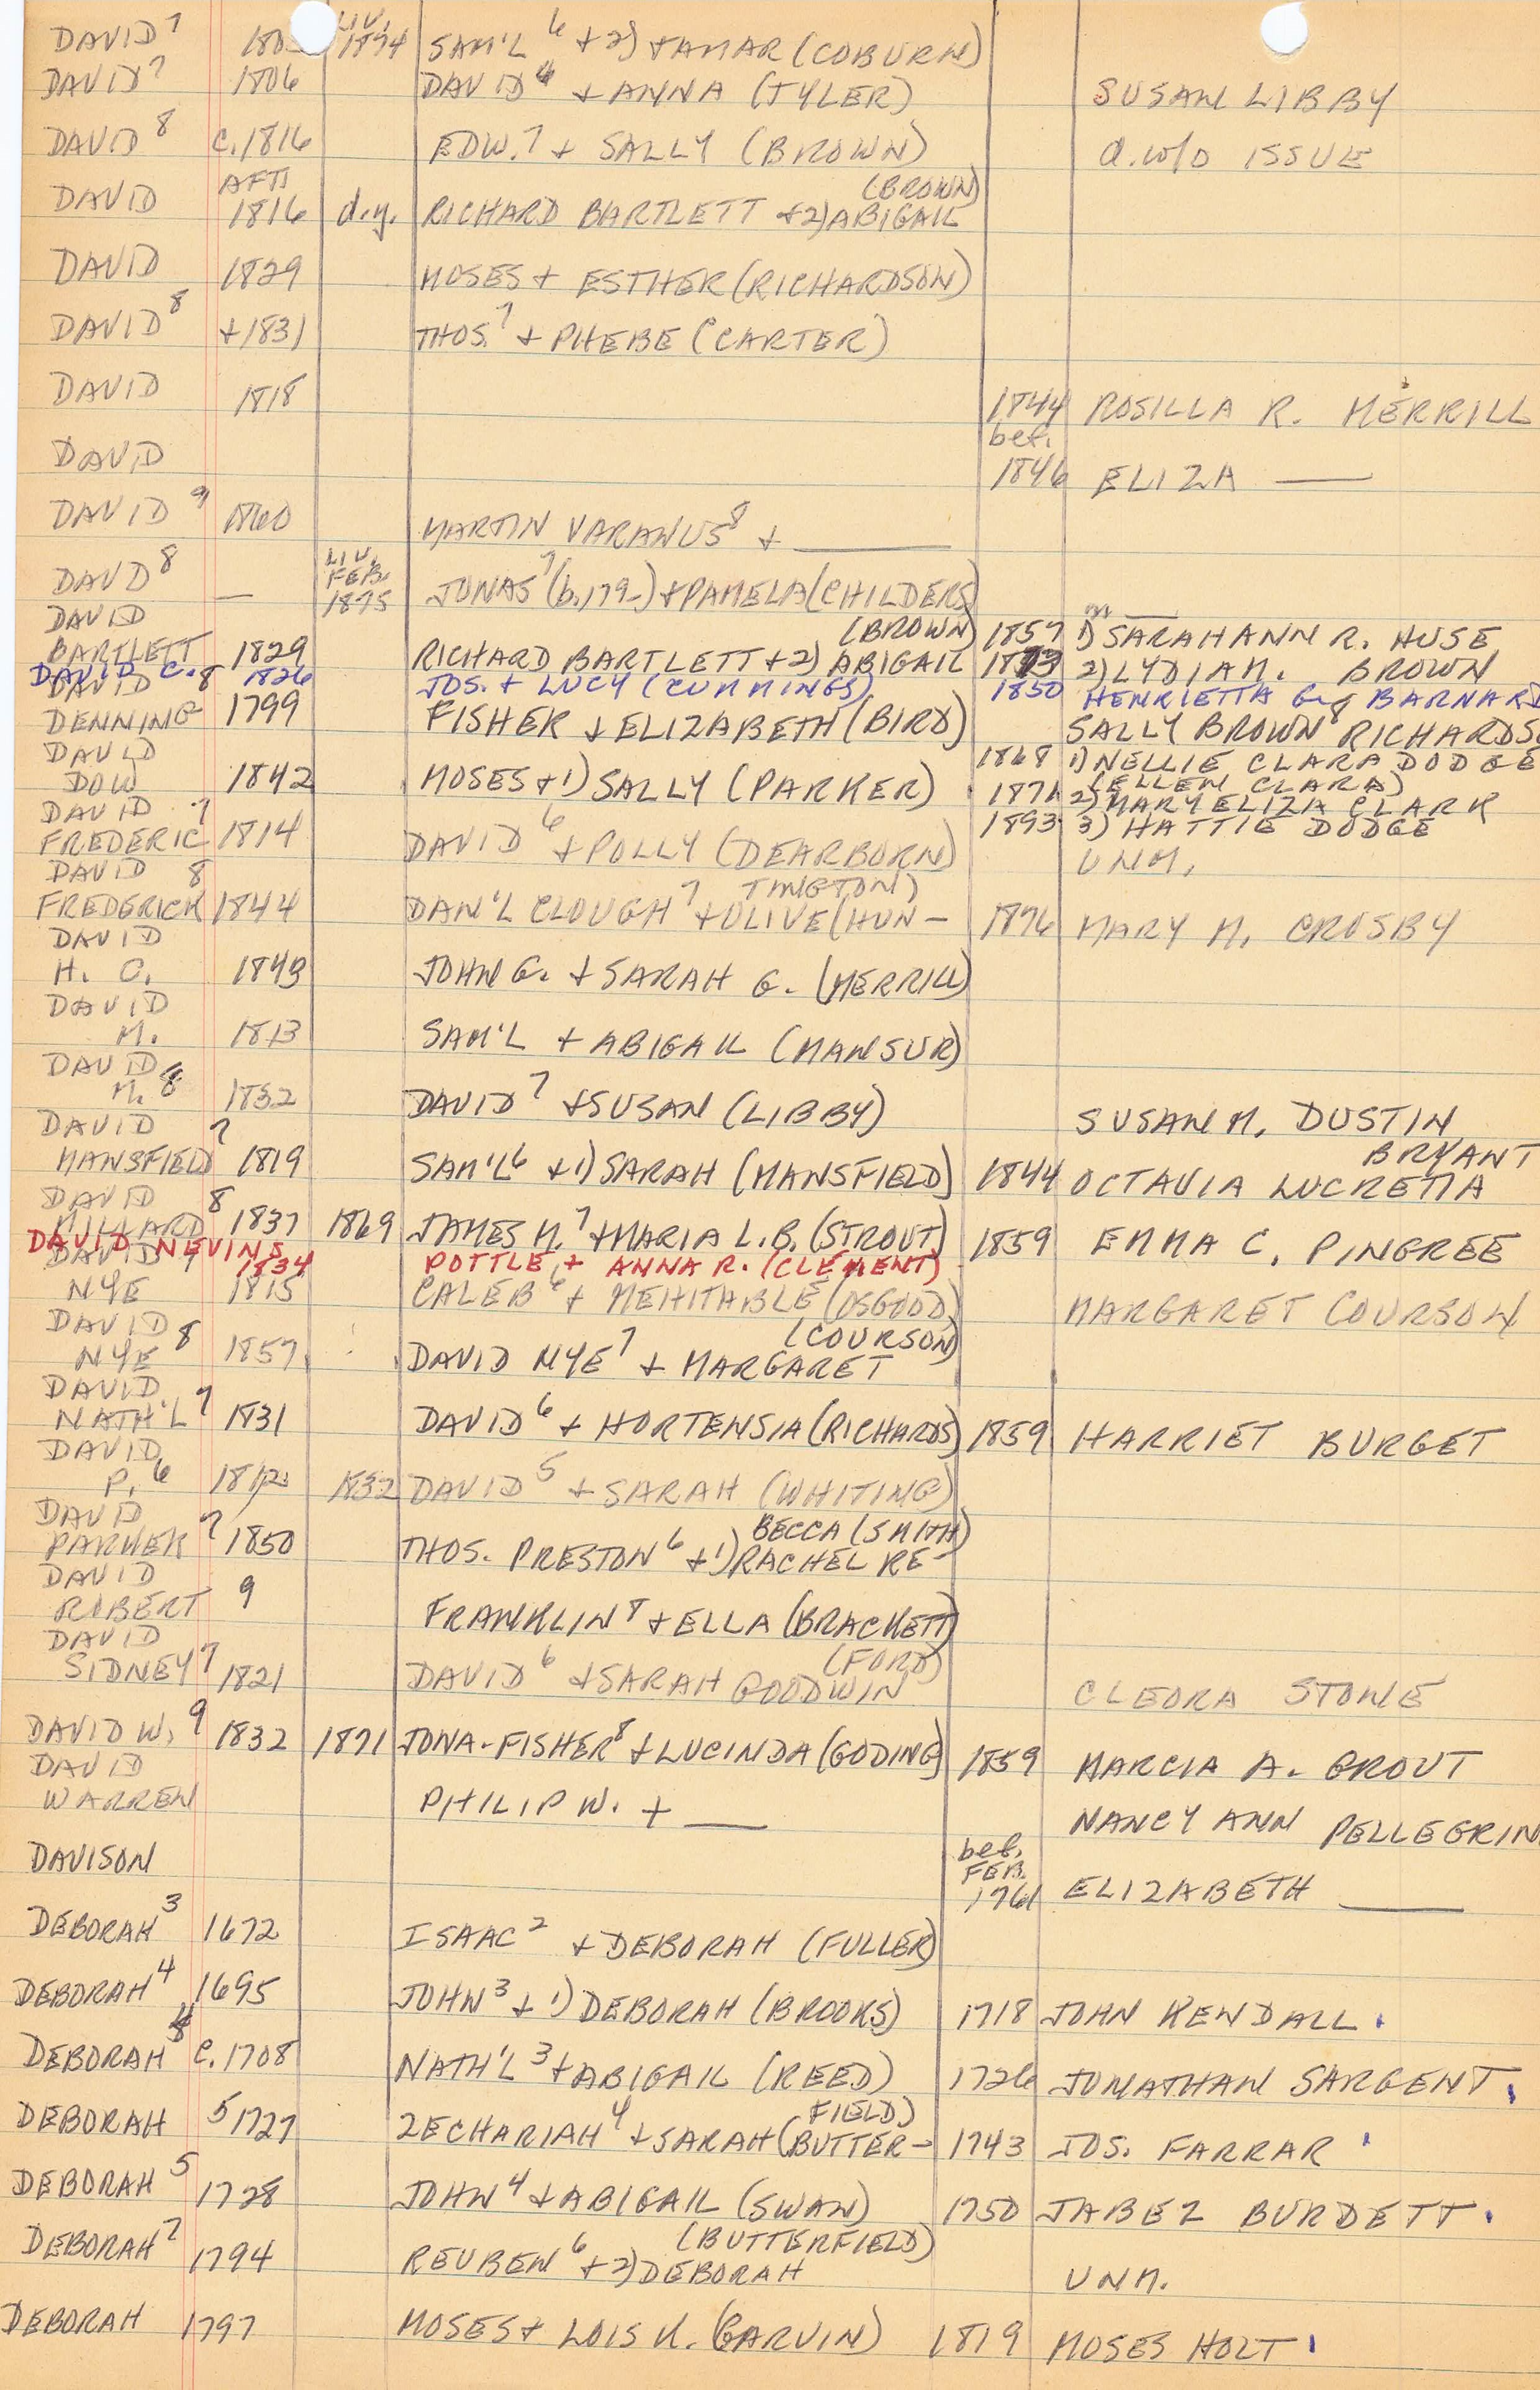 DAVID 7 LIV. 1874 SAM'L 6 + 2) TAMAR (COBURN)
DAVID 7 1806 DAVID 6 + ANNA (TYLER) SUSAN LIBBY
DAVID 8 C. 1816 EDW. 7 + SALLY (BROWN) d. w/o ISSUE
DAVID AFT. 1816 d.y. RICHARD BARTLETT + 2) ABIGAIL (BROWN)
DAVID 1829 MOSES + ESTHER (RICHARDSON)
DAVID 8 +1831 THOS. 7 + PHEBE (CARTER)
DAVID 1818 1844 ROSILLA R. MERRILL
DAVID bef. 1846 ELIZA —
DAVID 9 1860 MARTIN VARANUS 8 + —
DAVID 8 — LIV. FEB. 1875 JONAS 7 (b. 179-) + PAMELA (CHILDERS)
DAVID BARTLETT 1829 RICHARD BARTLETT + 2) ABIGAIL (BROWN) 1857 1) SARAH ANN R. HUSE
1873 2) LYDIA M. BROWN
DAVID C. 8 1826 JOS. + LUCY (CUMMINGS) 1850 HENRIETTA G. BARNARD
DAVID DENNING 1799 FISHER + ELIZABETH (BIRD) SALLY BROWN 8 RICHARDSO
DAVID DOW 1842 MOSES + 1) SALLY (PARKER) 1868 1) NELLIE CLARA DODGE
(ELLEN CLARA)
1871 2) MARY ELIZA CLARK
1893 3) HATTIE DODGE
DAVID FREDERIC 7 1814 DAVID 6 + POLLY (DEARBORN) UNM.
DAVID FREDERICK 8 1844 DAN'L CLOUGH 7 + OLIVE (HUN-TINGTON) 1876 MARY M. CROSBY
DAVID H. O. 1843 JOHN G. + SARAH G. (MERRILL)
DAVID M. 1813 SAM'L + ABIGAIL (MANSUR)
DAVID M. 8 1832 DAVID 7 + SUSAN (LIBBY) SUSAN M. DUSTIN
DAVID MANSFIELD 7 1819 SAM'L 6 + 1) SARAH (MANSFIELD) 1844 OCTAVIA LUCRETIA BRYANT
DAVID MILLARD 8 1837 1869 JAMES M. 7 + MARIA L.B. (STROUT) 1859 EMMA C. PINGREE
DAVID NEVINS 1834 POTTLE + ANNA R. (CLEMENT)
DAVID NYE 7 1815 CALEB 6 + MEHITABLE (OSGOOD) MARGARET COURSON
DAVID NYE 8 1857 DAVID NYE 7 + MARGARET (COURSON)
DAVID NATH'L 7 1831 DAVID 6 + HORTENSIA (RICHARDS) 1859 HARRIET BURGET
DAVID P. 6 1832 DAVID 5 + SARAH (WHITING)
DAVID PARKER 7 1850 THOS. PRESTON 6 + 1) RACHEL RE-BECCA (SMITH)
DAVID ROBERT 9 FRANKLIN 8 + ELLA (BRACKETT)
DAVID SIDNEY 7 1821 DAVID 6 + SARAH GOODWIN (FORD) CLEORA STONE
DAVID W. 9 1832 1871 JONA. FISHER 8 + LUCINDA (GODING) 1859 MARCIA A. GROUT
DAVID WARREN PHILIP W. + — NANCY ANN PELLEGRIN
DAVISON bef. FEB. 1761 ELIZABETH —
DEBORAH 3 1672 ISAAC 2 + DEBORAH (FULLER)
DEBORAH 4 1695 JOHN 3 + 1) DEBORAH (BROOKS) 1718 JOHN KENDALL
DEBORAH 4 C. 1708 NATH'L 3 + ABIGAIL (REED) 1726 JONATHAN SARGENT
DEBORAH 5 1727 ZECHARIAH 4 + SARAH (BUTTER-FIELD) 1743 JOS. FARRAR
DEBORAH 5 1728 JOHN 4 + ABIGAIL (SWAN) 1750 JABEZ BURDETT
DEBORAH 7 1794 REUBEN 6 + 2) DEBORAH (BUTTERFIELD) UNM.
DEBORAH 1797 MOSES + LOIS K. (GARVIN) 1819 MOSES HOLT